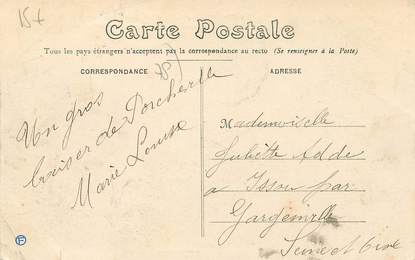 15+
Carte Postale
Tous les pays étrangers n'acceptent pas la correspondance au recto (Se renseigner à la Poste)
CORRESPONDANCE
ADRESSE
Un gros
baiser de Porcheville
Marie Louise
Mademoiselle
Juliette Adde
a Issou par
Gargenville
Seine et Oise